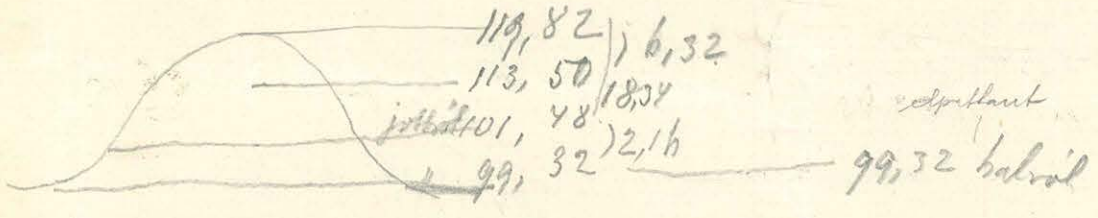 119,82 ) 6,32
113,50
18,34
jobbról 101,48 ) 2,16
" 99,32
99,32 balról